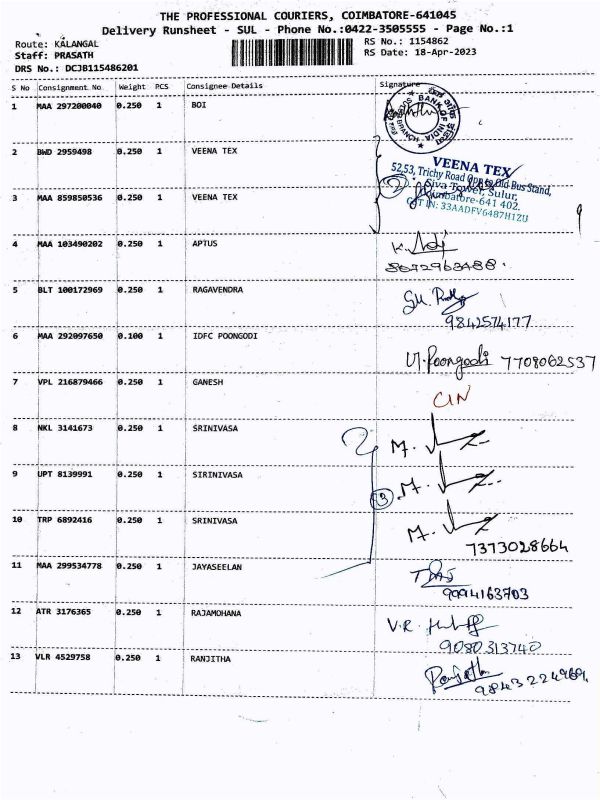 THE PROFESSIONAL COURIERS, COIMBATORE-641045
Delivery Runsheet - SUL - Phone No.:0422-3505555 - Page No.:1
Route: KALANGAL
RS No.: 1154862
Staff: PRASATH
RS Date: 18-Apr-2023
DRS No.: DCJB115486201
S No Consignment No Weight PCS Consignee Details Signature
1 MAA 297200040 0.250 1 BOI
BANK OF INDIA
2 BWD 2959498 0.250 1 VEENA TEX
VEENA TEX
52,53, Trichy Road Opp to Old Bus Stand,
Siva Tower, Sulur,
Coimbatore-641 402.
GST IN: 33AADFV6487H1ZU
2
3 MAA 859850536 0.250 1 VEENA TEX
4 MAA 103490202 0.250 1 APTUS
5 BLT 100172969 0.250 1 RAGAVENDRA
9842574177
6 MAA 292097650 0.100 1 IDFC POONGODI
M. Poongodi 7708062537
7 VPL 216879466 0.250 1 GANESH
CIN
8 NKL 3141673 0.250 1 SRINIVASA
9 UPT 8139991 0.250 1 SIRINIVASA
3
10 TRP 6892416 0.250 1 SRINIVASA
7373028664
11 MAA 299534778 0.250 1 JAYASEELAN
9994163703
12 ATR 3176365 0.250 1 RAJAMOHANA
V.R.
9080313740
13 VLR 4529758 0.250 1 RANJITHA
Ranjitha